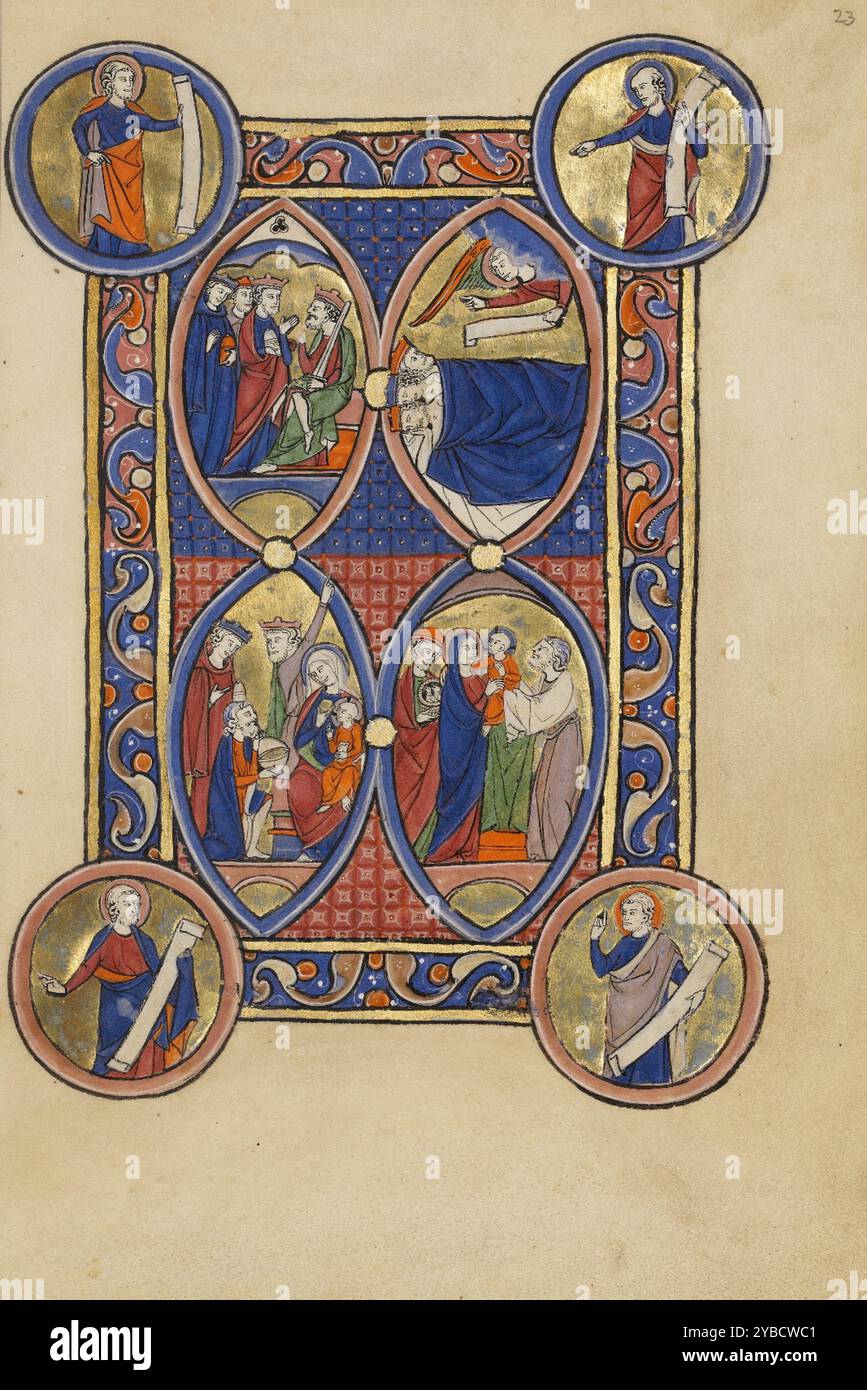 23
alamy
a
a
a
a
a
a
a
a
a
a
a
a
a
alamy
Image ID: 2YBCWC1
www.alamy.com